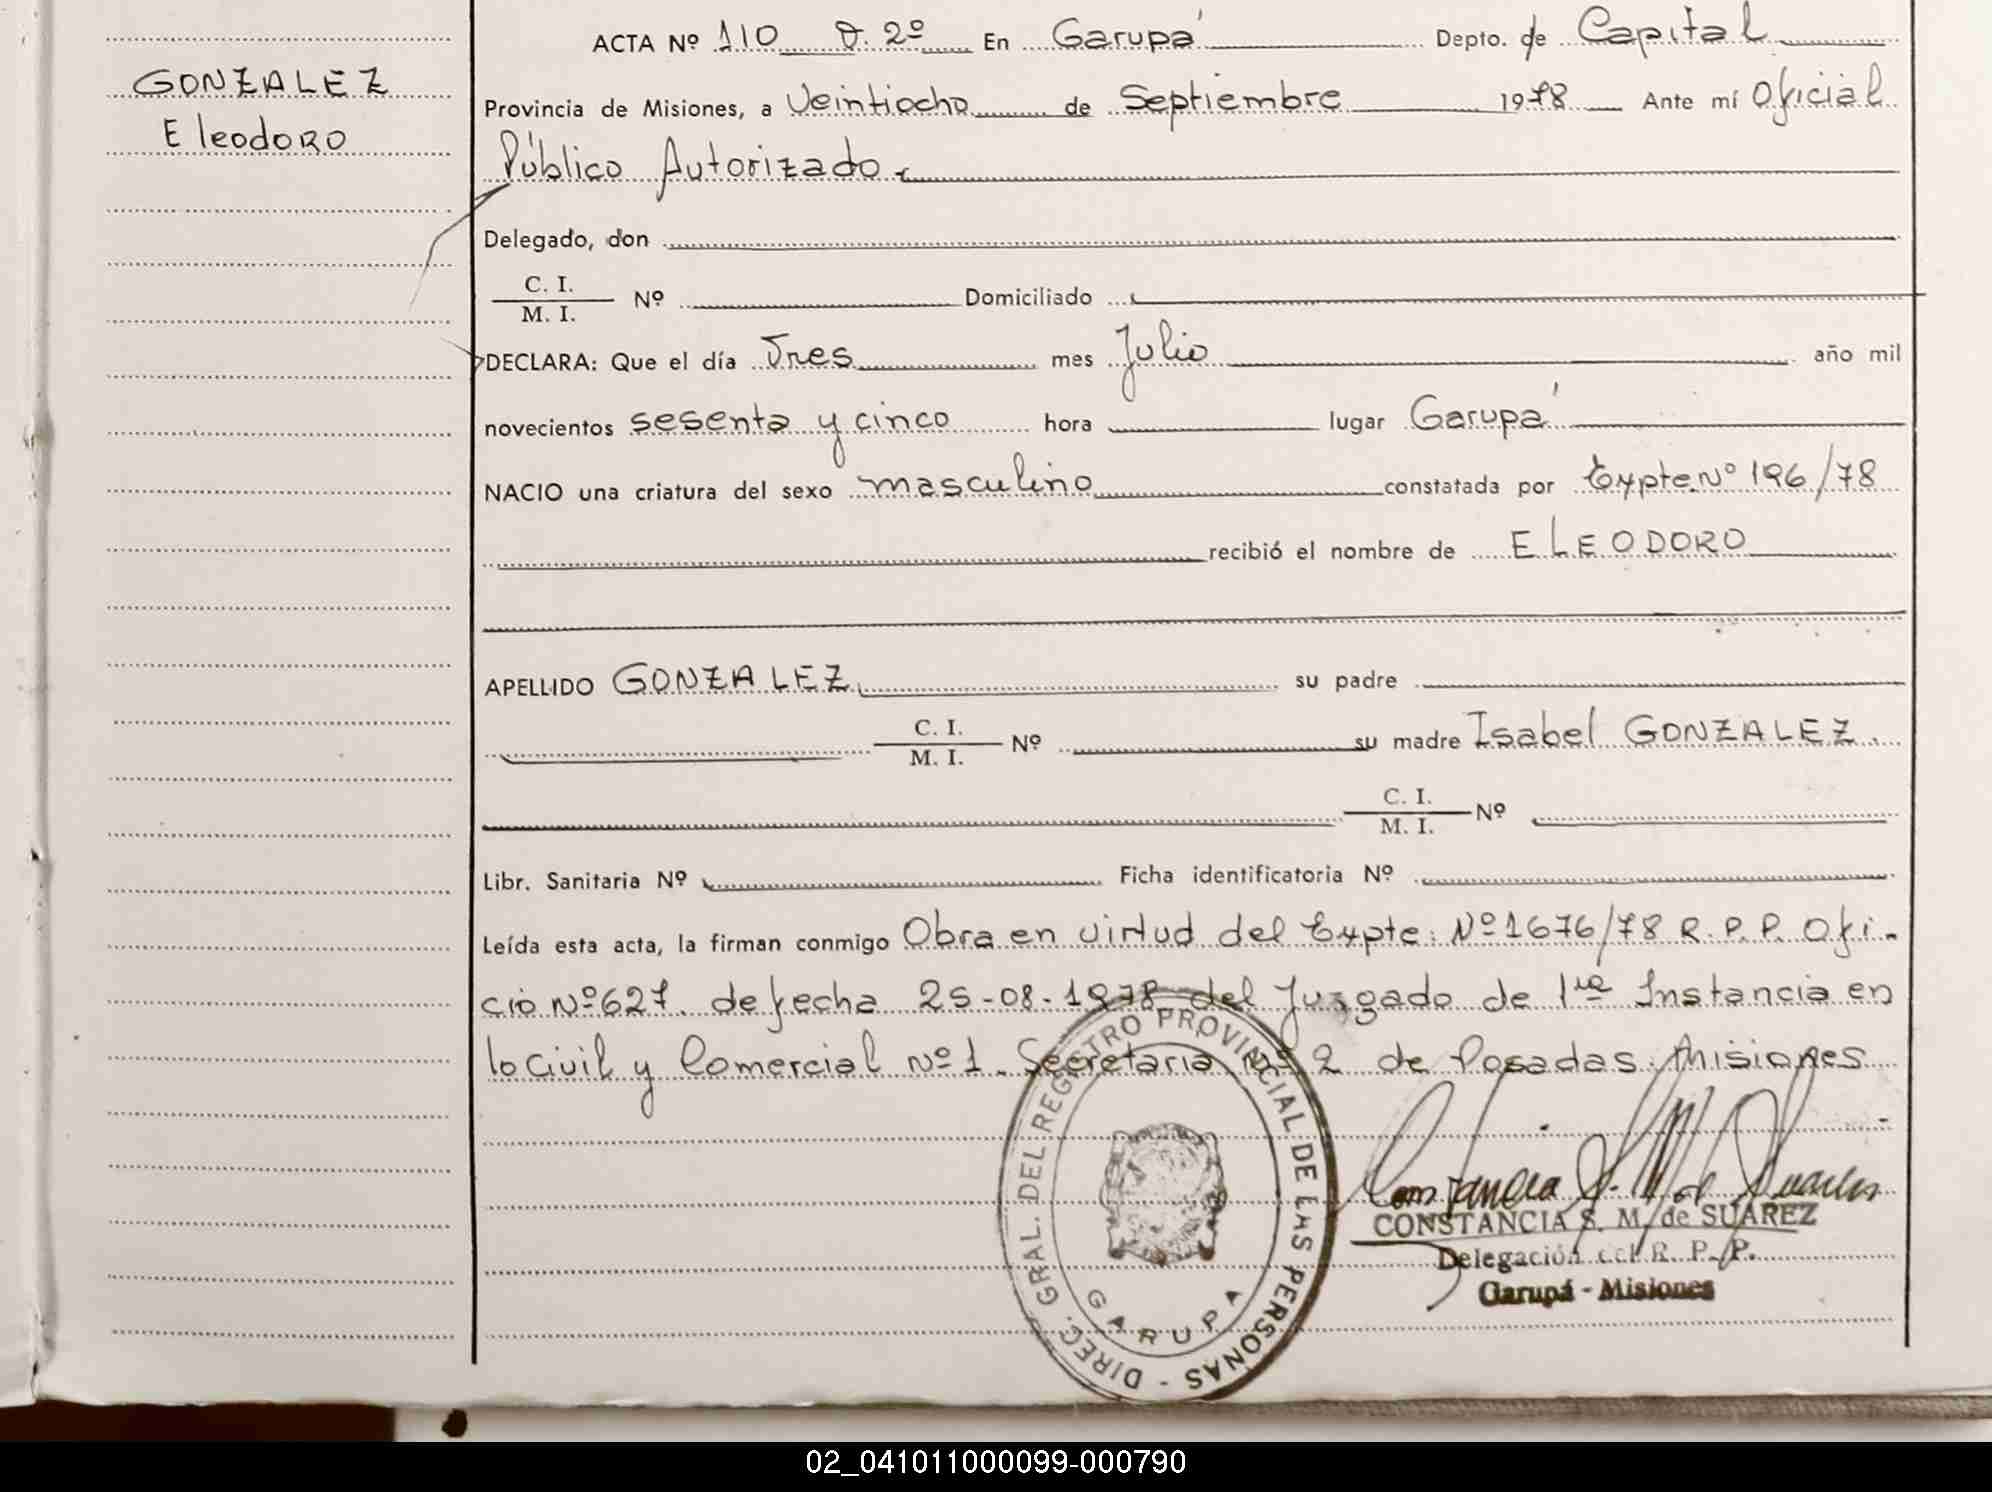 GONZALEZ
Eleodoro
ACTA Nº 110 D. 2º En Garupá Depto. de Capital
Provincia de Misiones, a Veintiocho de Septiembre 1978 Ante mí Oficial
Público Autorizado
Delegado, don
C. I.
M. I. Nº Domiciliado
DECLARA: Que el día Tres mes Julio año mil
novecientos sesenta y cinco hora lugar Garupá
NACIO una criatura del sexo masculino constatada por Expte. Nº 196/78
recibió el nombre de ELEODORO
APELLIDO GONZALEZ su padre
C. I.
M. I. Nº su madre Isabel GONZALEZ.
C. I.
M. I. Nº
Libr. Sanitaria Nº Ficha identificatoria Nº
Leída esta acta, la firman conmigo Obra en virtud del Expte. Nº 1676/78 R. P. P. Ofi-
cio Nº 627. de fecha 25-08-1978 del Juzgado de 1ra Instancia en
lo Civil y Comercial Nº 1. Secretaria Nº 2 de Posadas. Misiones
DIREC. GRAL. DEL REGISTRO PROVINCIAL DE LAS PERSONAS -
GARUPA
Constancia S. M. de Suarez
CONSTANCIA S. M. de SUAREZ
Delegación del R. P. P.
Garupá - Misiones
02_041011000099-000790